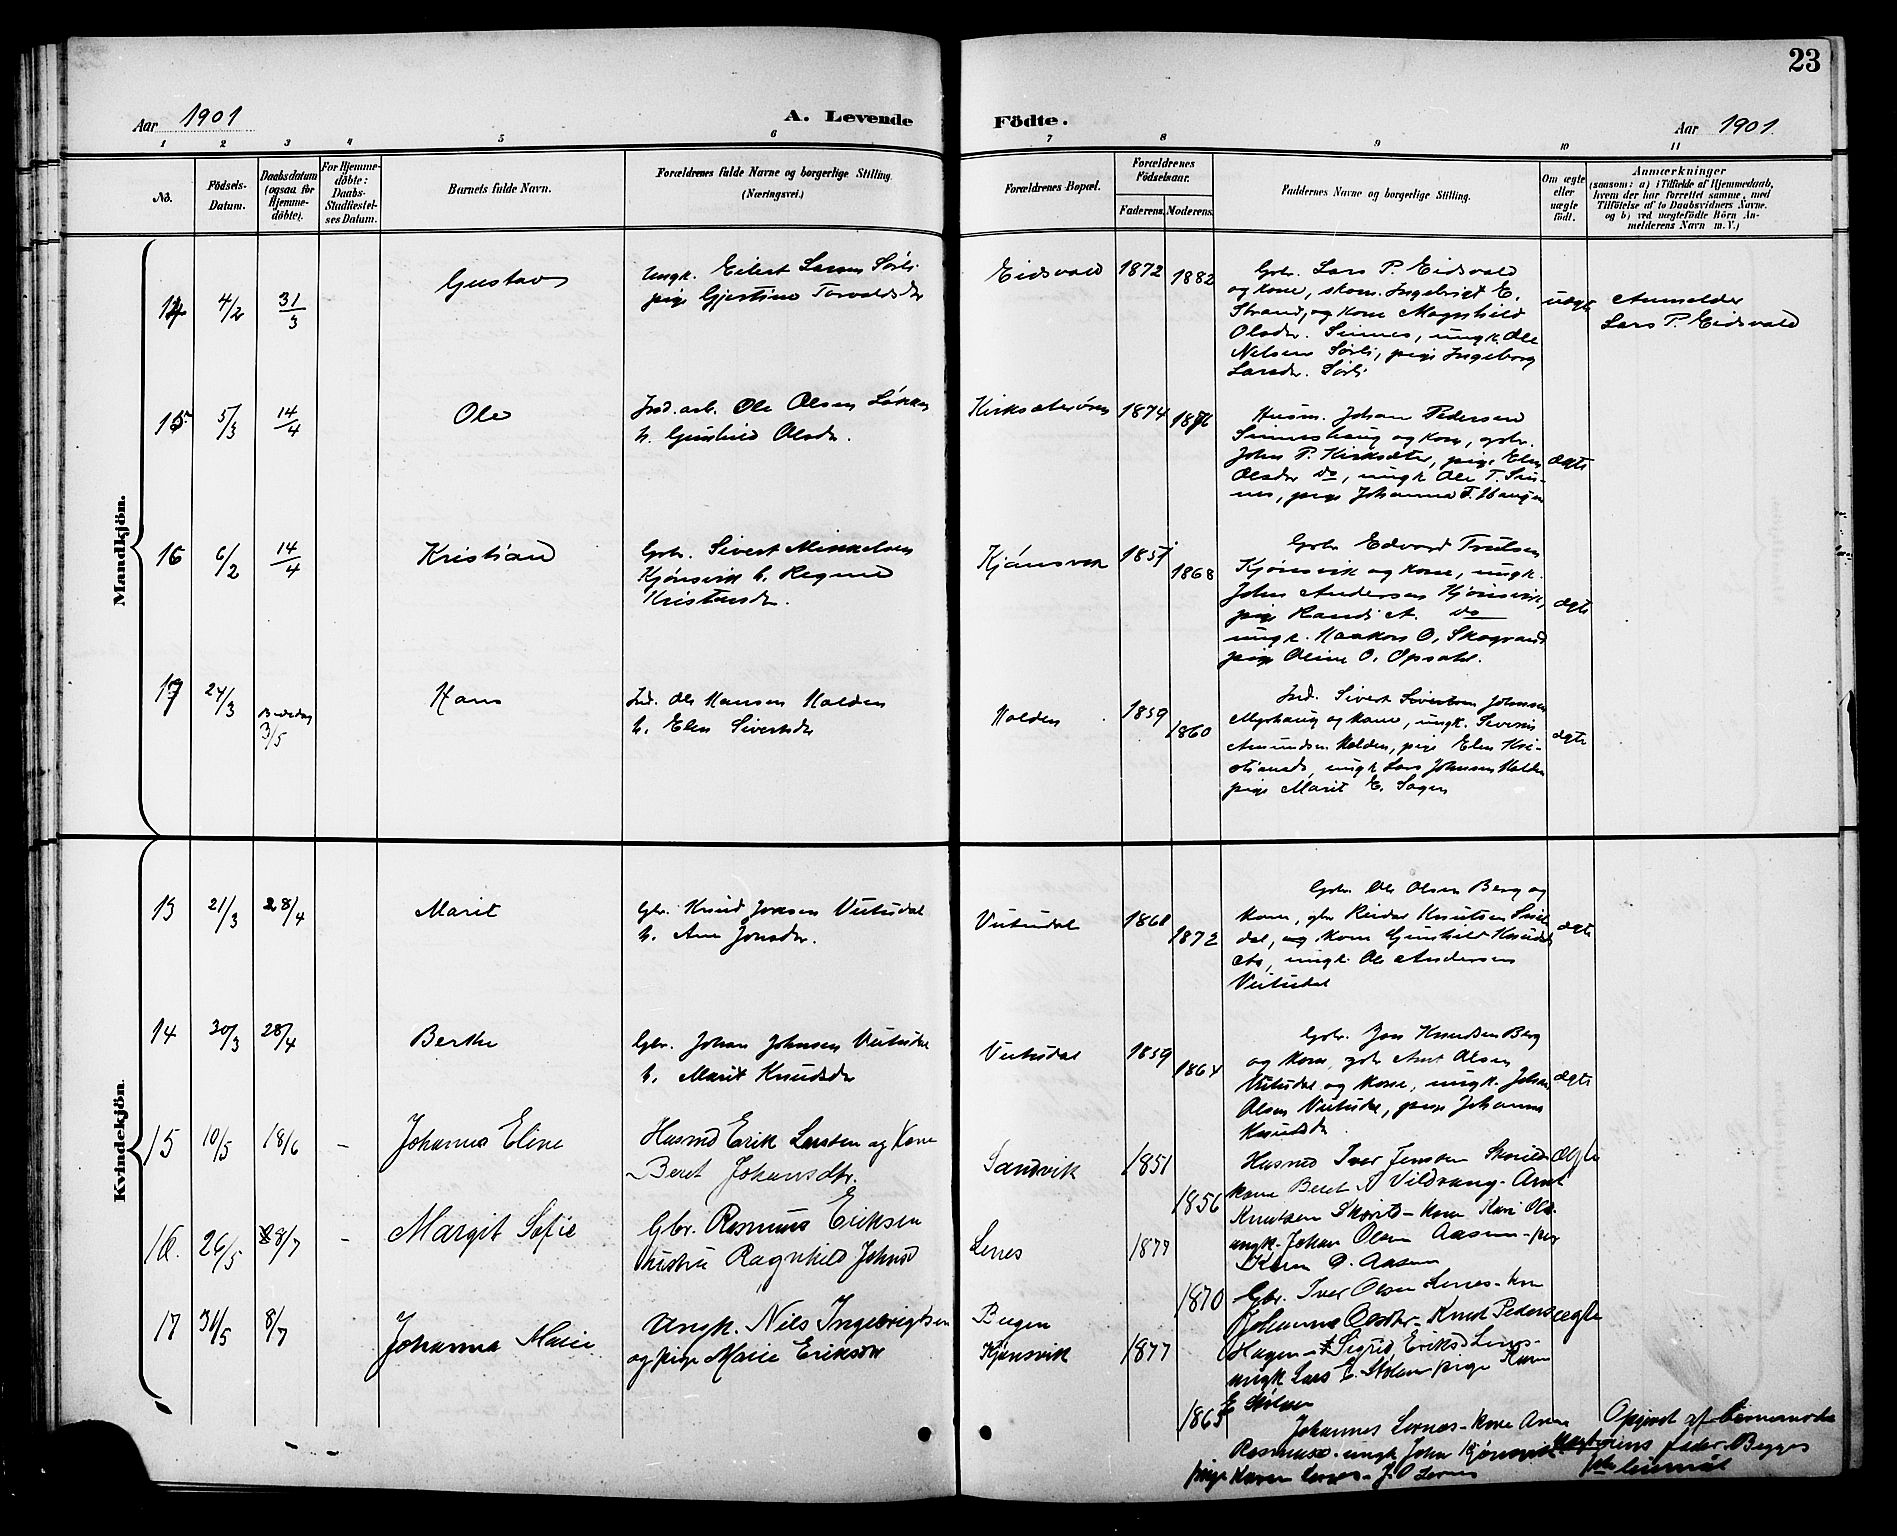 23
Aar 1901
A. Levende
Födte.
Aar 1901.
1 2 3 4 5 6 7 8 9 10 11
No.
Födsels-
Datum.
Daabsdatum
(ogsaa for
Hjemme-
döbte).
For Hjemme-
döbte:
Daabs-
Stadfæstel-
ses Datum.
Barnets fulde Navn.
Forældrenes fulde Navne og borgerlige Stilling.
(Næringsvei.)
Forældrenes Bopæl.
Forældrenes
Födselsaar.
Faderens. Moderens.
Faddernes Navne og borgerlige Stilling.
Om ægte
eller
uægte
födt.
Anmærkninger
(saasom: a) i Tilfælde af Hjemmedaab,
hvem der har forrettet samme, med
Tilföielse af to Daabsvidners Navne.
og b) ved uægtefödte Börn An-
melderens Navn m. V.)
Mandkjön.
14 4/2 31/3
Gustav
Ungk. Eilert Larsen Sørli
pige Gjertine Torvaldsdr
Eidsvald
1872
1882
Gbr. Lars P. Eidsvald
og kone, skom. Ingebrigt E.
Strand, og kone Magnhild
Olsdr. Sinnes, ungk. Ole
Nelsen Sørli, pige Ingeborg
Larsdr. Sørli
uægte
Anmelder
Lars P. Eidsvald
15 5/3 14/4
Ole
Ind. arb. Ole Olsen Løkken
h. Gunhild Olsdr.
Kirksæterøren
1874
1876
Husm. Johan Pedersen
Sinneshaug og kone, gbr.
John P. Kirksæter, pige Elen
Olsdr do, ungk Ole T. Sin-
nes, pige Johanna F. Haugen
ægte
16 6/2 14/4
Kristian
Gbr. Sivert Mikkelsen
Kjønsvik h. Regine
Kristensdr.
Kjønsvik
1857
1868
Gbr Edvard Trulsen
Kjønsvik og kone, ungk.
John Andersen Kjønsvik,
pige Randi A. do
ungk. Haakon O. Skogrand
pige Oline O. Opsahl.
ægte
17 24/3 Bededag 3/5
Hans
Ind. Ole Hansen Halden
h. Elen Sivertsdr
Halden
1859
1860
Ind. Sivert Sivertsen Johnsen
Myrhaug og kone, ungk. Sivert
Amundsen Halden, pige Elen Kri-
stiansdr, ungk Lars Johnsen Halden
pige Marit E. Sagen
ægte
Kvindekjön.
13 21/3 28/4
Marit
Gbr. Knud Jonsen Vutudal
h. Ane Jonsdr.
Vutudal
1868
1872
Gbr. Ole Olsen Berg og
kone, gbr Reidar Knutsen
dal, og kone Gunhild Knudsd
ungk. Ole Andersen
Vutudal
ægte
14 30/3 28/4
Berthe
Gbr. Johan Johnsen Vutudal
h. Marit Knudsdr
Vutudal
1859
1864
Gbr. Jon Knudsen Berg
og kone, gbr Arnt Olsen
Vutudal og kone, ungk. Johan
Olsen Vutudal, pige Johanna
Knudsdr
ægte
15 10/5 18/6 –
Johanna Eline
Husmd Erik Larsen og Kone
Beret Johansdtr.
Sandvik
1851
1856
Husmd Iver Jensen
kone Beret Vildvang – Arnt
Knutsen – kone Kari Ols
ungk. Johan Olsen Aasen – pig
Karen O. Aasen
ægte
16. 26/5 8/7 –
Margit Sofie
Gbr. Rasmus Eriksen
hustru Ragnhild Johnsd
Lernes
1877
1870
Gbr. Iver Olsen Lernes – kone
Johanna Olsdtr – Knut Peders
Hagen – Sigrid Eriksd Lernes –
ungk Lars E. Stolan pige Karen
E Stølan
ægte
17 31/5 8/7
Johanna Marie
Ungk. Nils Ingebrigtsen
og pige Marie Eriksdr
Bugen
Kjønsvik
1877
1865
Johannes Lernes – kone Anna
Rasmusd – ungk John Kjønsvik
pige Karen Lernes – J. O Lernes
Opgivet af barnemoder
fader. Begges
1ste leiermål